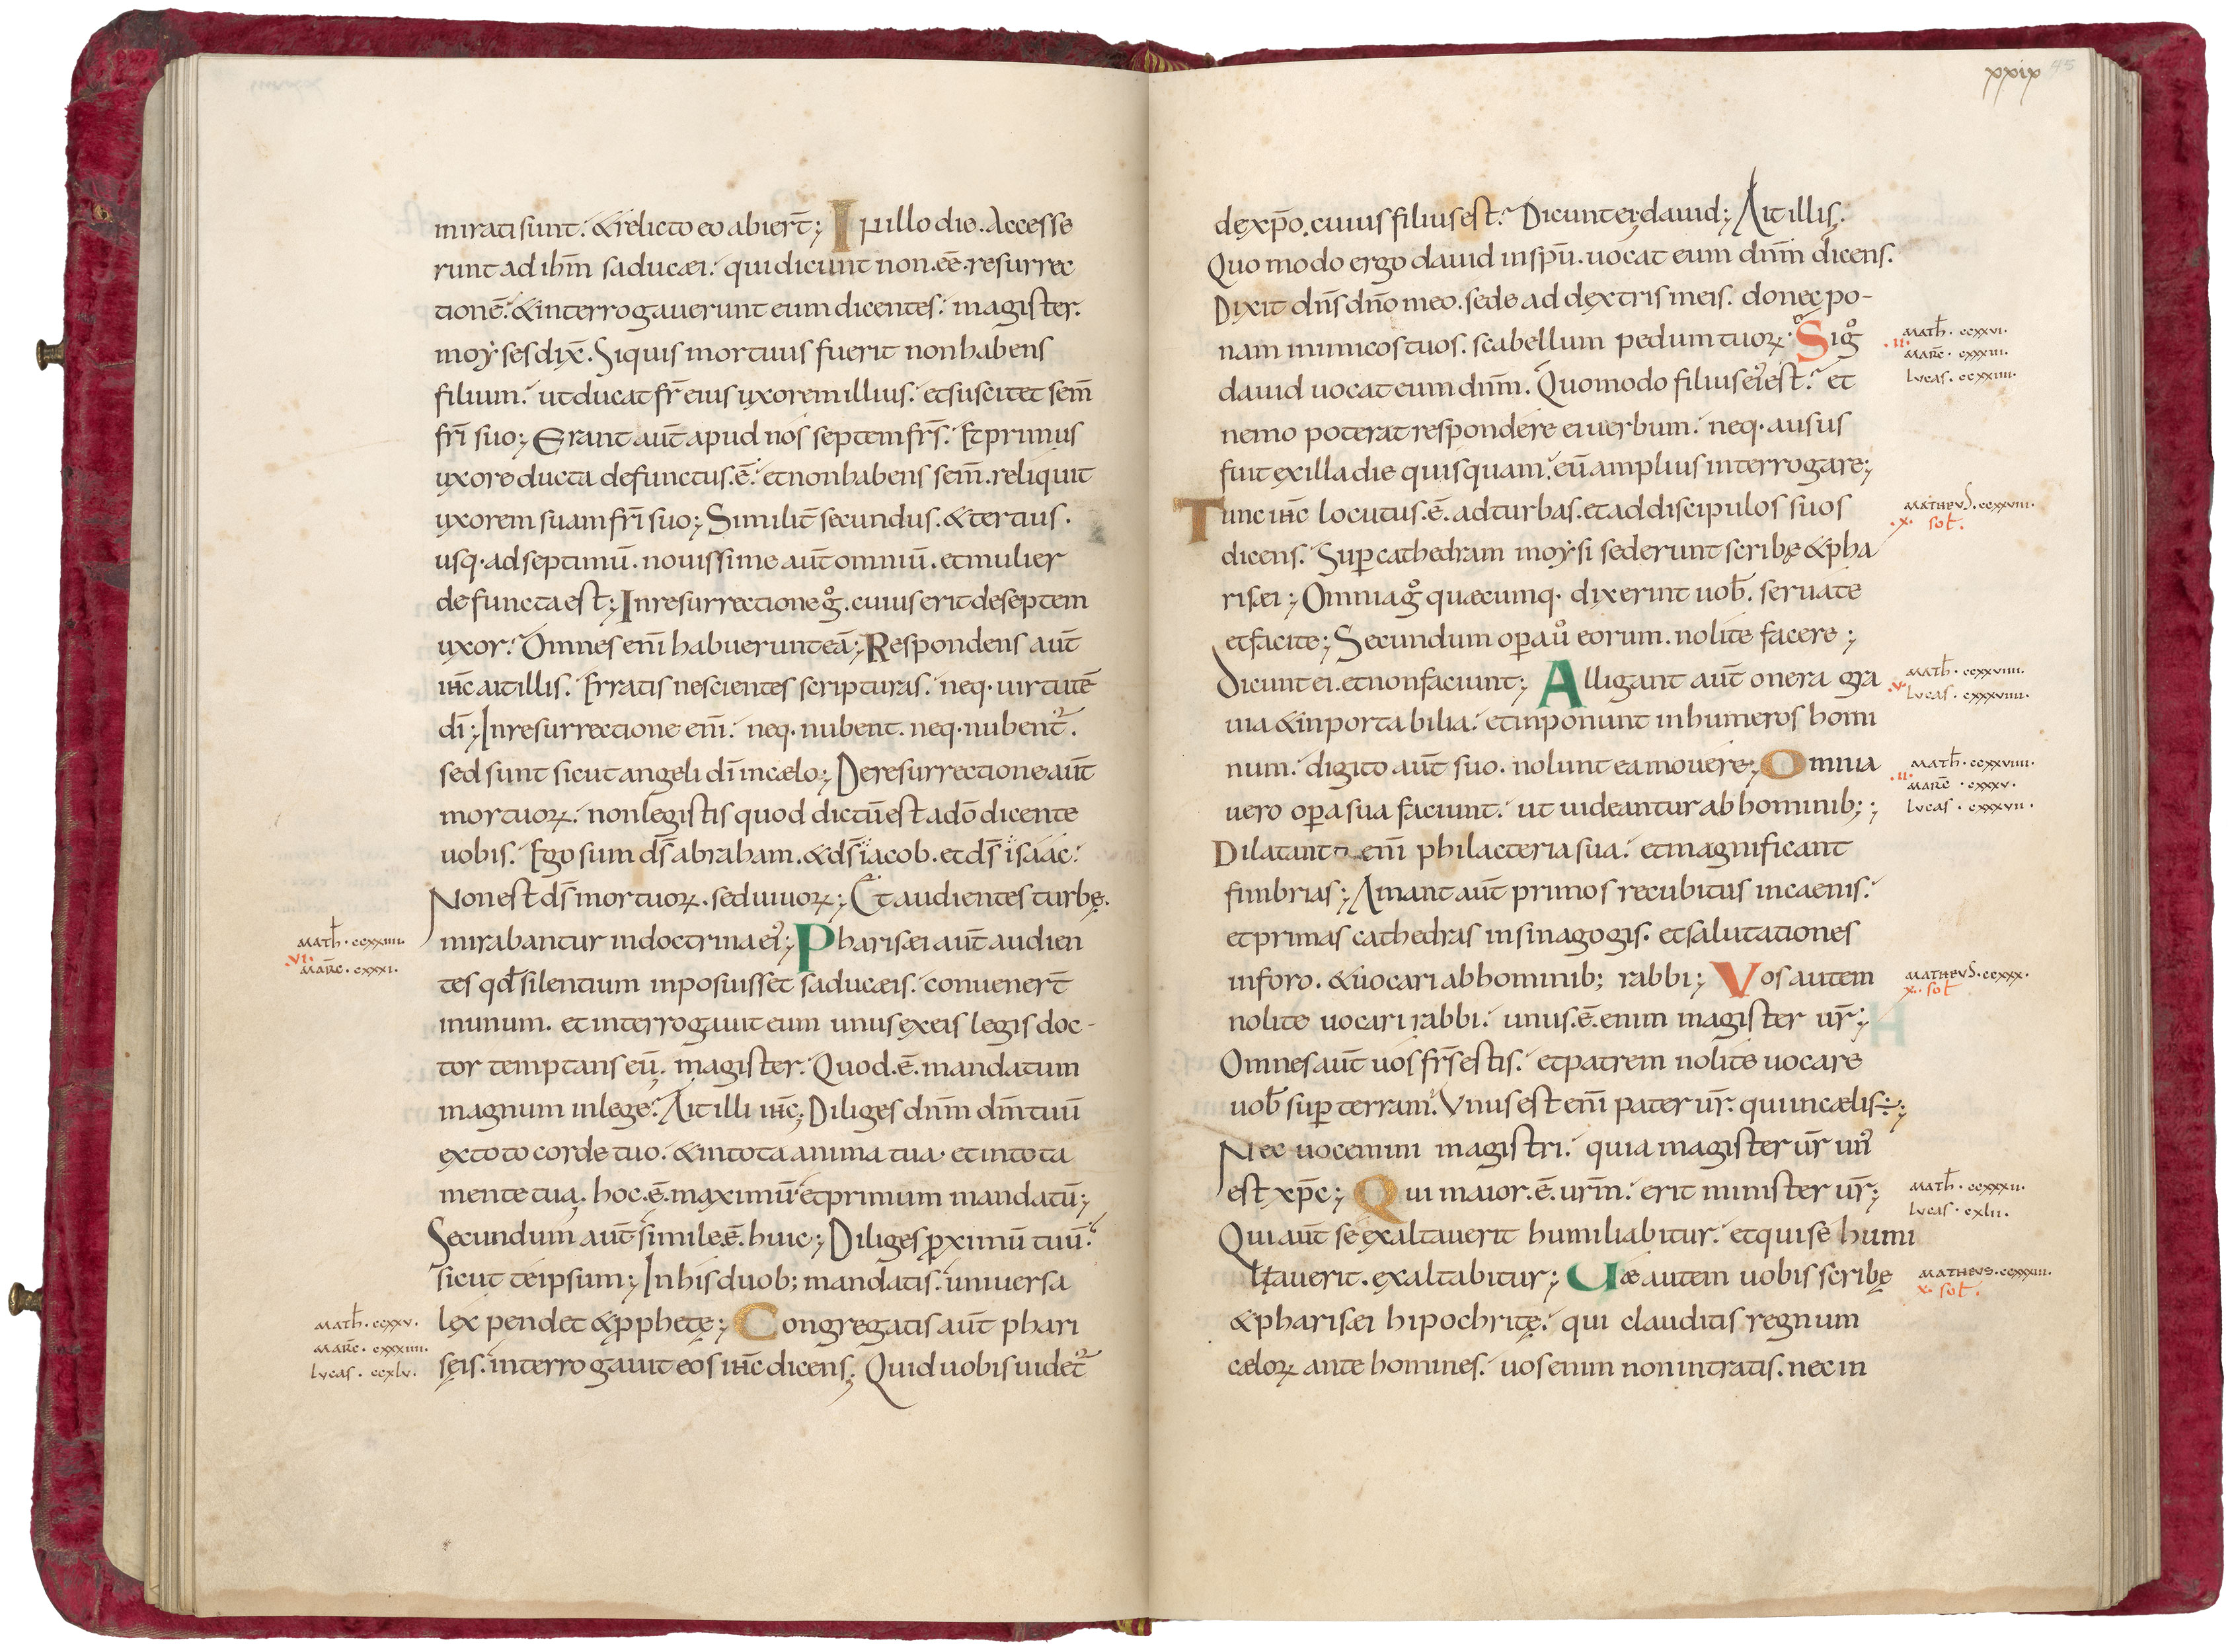 mirati sunt. & relicto eo abier̄t; In illo die. Accesse
runt ad ih̄m saducæi. qui dicunt non .ēē. resurrec
tionē. & interrogauerunt eum dicentes. magister.
moyses dix̄. Si quis mortuus fuerit non habens
filium. ut ducat fr̄ eius uxorem illius. et suscitet sem̄
fr̄i suo; Erant aut̄ apud nos septem fr̄s. Et primus
uxore ducta defunctus .ē. et non habens sem̄. reliquit
uxorem suam fr̄i suo; Similit̄ secundus. & tertius.
usq· ad septimū. nouissime aut̄ omniū. et mulier
defuncta est; In resurrectione gͦ. cuius erit de septem
uxor. Omnes eni̅ habuerunt eā; Respondens aut̄
ih̄c ait illis. Erratis nescientes scripturas. neq· uirtutē
dī; In resurrectione eni̅. neq· nubent. neq· nubent᷑.
sed sunt sicut angeli dī in cælo; De resurrectione aut̄
mortuoꝝ. non legistis quod dictū est a dō dicente
uobis. Ego sum ds̄ abraham. & ds̄ iacob. et ds̄ isáác.
Non est ds̄ mortuoꝝ. sed uiuoꝝ; Et audientes turbę.
mirabantur in doctrina ei᾽; Pharisæi aut̄ audien
tes qd̄ silentium inposuisset saducæis. conuener̄t
in unum. et interrogauit eum unus ex eis legis doc-
tor temptans eū. magister. Quod .ē. mandatum
magnum in lege. Ait illi ih̄c; Diliges dn̄m dm̄ tuū
ex toto corde tuo. & in tota anima tua. et in tota
mente tua. hoc .ē. maximū et primum mandatū;
Secundum aut̄ simile .ē. huic; Diliges ꝓximū tuū.
sicut te ipsum; In his duob; mandatis. uniuersa
lex pendet & ꝓphetę; Congregatis aut̄ phari
sęis. interrogauit eos ih̄c dicens; Quid uobis uidet᷑
math̄. ccxxiiii.
.vi.
marc̄. cxxxi.
math̄. ccxxv.
marc̄. cxxxiiii.
lucas. ccxlv.
xxix 45
de xp̄o. cuius filius est. Dicunt ei; dauid; Ait illis.
Quo modo ergo dauid in spū. uocat eum dn̄m dicens.
Dixit dn̄s dn̄o meo. sede ad dextris meis. donec po-
nam inimicos tuos. scabellum pedum tuoꝝ. Si gͦ
dauid uocat eum dn̄m. Quomodo filius ei᾽ est. et
nemo poterat respondere ei uerbum. neq· ausus
fuit ex illa die quisquam. eū amplius interrogare;
Tunc ih̄c locutus .ē. ad turbas. et ad discipulos suos
dicens. Sup̱ cathedram moysi sederunt scribę & pha
risæi; Omnia gͦ quæcumq· dixerint uob̄. seruate
et facite; Secundum op̱a uͦ eorum. nolite facere;
Dicunt ei. et non faciunt; Alligant aut̄ onera gra
uia & inportabilia. et inponunt in humeros homi
num. digito aut̄ suo. nolunt ea mouere; Omnia
uero op̱a sua faciunt. ut uideantur ab hominib;;
Dilatant eni̅ philacteria sua. et magnificant
fimbrias; Amant aut̄ primos recubitus in caenis.
et primas cathedras in sinagogis. et salutationes
in foro. & uocari ab hominib; rabbi; Vos autem
nolite uocari rabbi. unus .ē. enim magister ur̄;
Omnes aut̄ uos fr̄s estis. et patrem nolite uocare
uob̄ sup̱ terram. Vnus est eni̅ pater ur̄. qui in cælis÷;
Nec uocemini magistri. quia magister ur̄ un᾽
est xp̄c; Qui maior .ē. urm̄. erit minister ur̄;
Qui aut̄ se exaltauerit humiliabitur. et qui se humi
liauerit. exaltabitur; Uæ autem uobis scribę
& pharisæi hipochritę. qui clauditis regnum
cæloꝝ ante homines. uos enim non intratis. nec in
math̄. ccxxvi.
.ii.
marc̄. cxxxiii.
lucas. ccxxiiii.
matheus. ccxxviii.
.x. sol̄.
math̄. ccxxviiii.
.v.
lucas. cxxxviiii.
math̄. ccxxviiii.
.ii.
marc̄. cxxxv.
lucas. cxxxvii.
matheus. ccxxx.
x. sol̄
math̄. ccxxxii.
lucas. cxlii.
matheus. ccxxxiii.
x. sol̄.